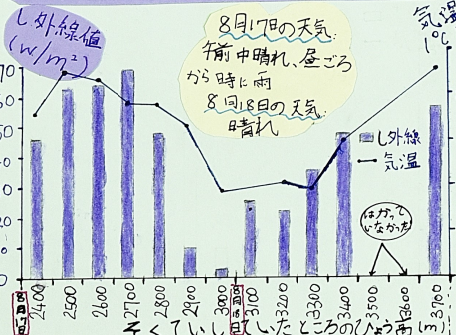 し外線値
(w/m²)
8月17日の天気
午前中晴れ、昼ごろ
から時に雨
8月18日の天気
晴れ
気温
℃
70
60
50
40
30
20
10
0
し外線
気温
はかって
いなかった
8月17日
2400
2500
2600
2700
2800
2900
3000
8月18日
3100
3200
3300
3400
3500
3600
3700
そくていしていたところのひょう高(m)